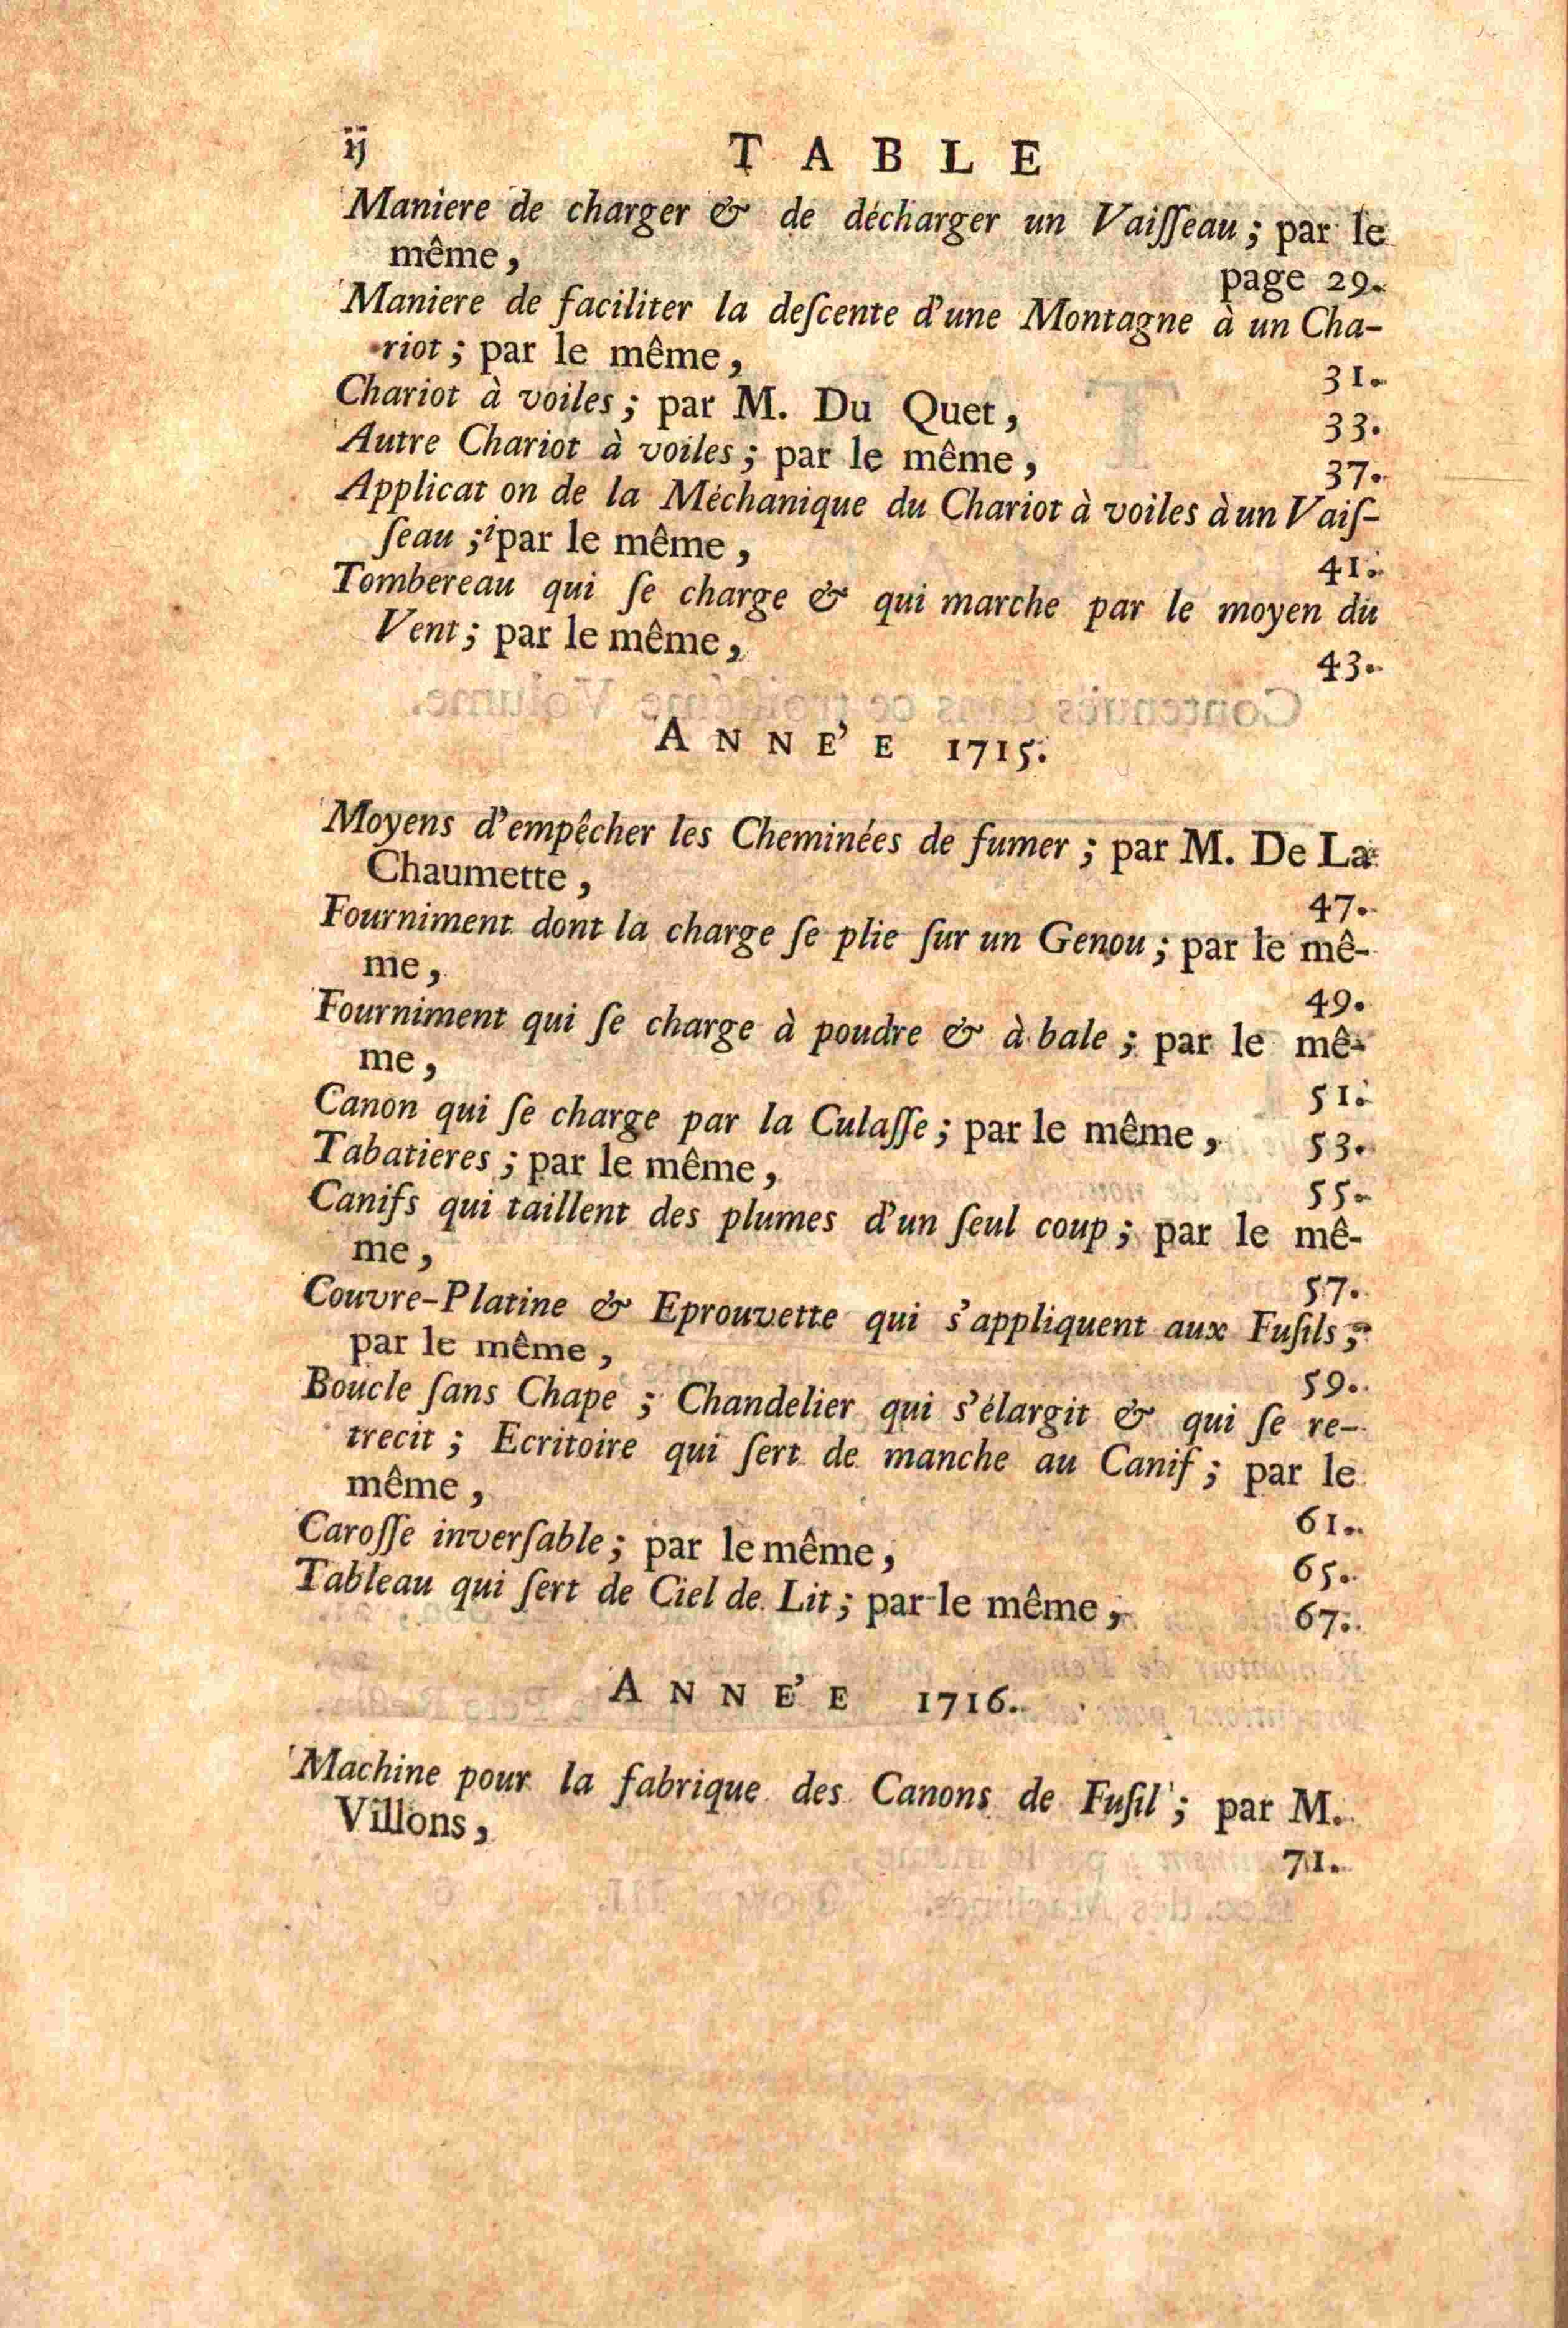 ij TABLE
Maniere de charger & de décharger un Vaiſſeau ; par le
même, page 29.
Maniere de faciliter la deſcente d'une Montagne à un Cha-
riot ; par le même, 31.
Chariot à voiles ; par M. Du Quet, 33.
Autre Chariot à voiles ; par le même, 37.
Applicat on de la Méchanique du Chariot à voiles à un Vaiſ-
ſeau ;ipar le même, 41.
Tombereau qui ſe charge & qui marche par le moyen du
Vent ; par le même, 43.
ANNE'E 1715.
Moyens d'empêcher les Cheminées de fumer ; par M. De La
Chaumette, 47.
Fourniment dont la charge ſe plie ſur un Genou ; par le mê-
me, 49.
Fourniment qui ſe charge à poudre & à bale ; par le mê-
me, 51.
Canon qui ſe charge par la Culaſſe ; par le même, 53.
Tabatieres ; par le même, 55.
Canifs qui taillent des plumes d'un ſeul coup ; par le mê-
me, 57.
Couvre-Platine & Eprouvette qui s'appliquent aux Fuſils ;
par le même, 59.
Boucle ſans Chape ; Chandelier qui s'élargit & qui ſe re-
trecit ; Ecritoire qui ſert de manche au Canif ; par le
même, 61.
Caroſſe inverſable ; par le même, 65.
Tableau qui ſert de Ciel de Lit ; par le même, 67.
ANNE'E 1716.
Machine pour la fabrique des Canons de Fuſil ; par M.
Villons, 71.